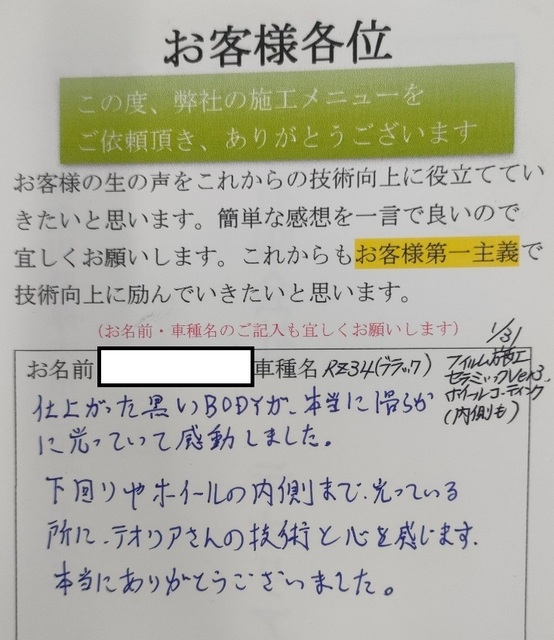 お客様各位
この度、弊社の施工メニューを
ご依頼頂き、ありがとうございます
お客様の生の声をこれからの技術向上に役立ててい
きたいと思います。簡単な感想を一言で良いので
宜しくお願いします。これからもお客様第一主義で
技術向上に励んでいきたいと思います。
(お名前・車種名のご記入も宜しくお願いします)
1/31
お名前 車種名 RZ34(ブラック)
フィルム施工
セラミックVer3.
ホイールコーティング
(内側も)
仕上がった黒いBODYが、本当に滑らか
に光っていて感動しました。
下回りやホイールの内側まで、光っている
所に、テオリアさんの技術と心を感じます.
本当にありがとうございました。